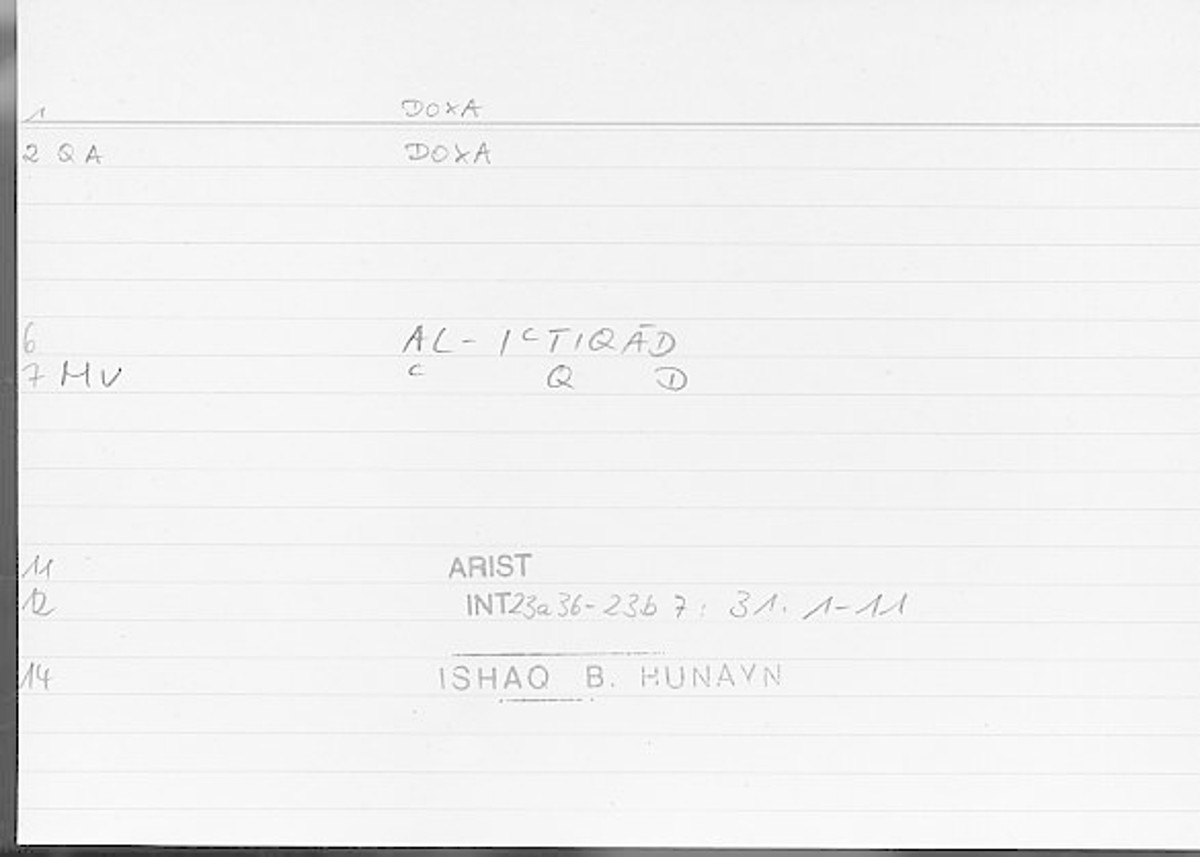 1 DOXA
2 QA DOXA
6 AL-IcTIQĀD
7 MV c Q D
11 ARIST
12 INT23a36-23b 7: 31. 1-11
14 ISHAQ B. HUNAYN